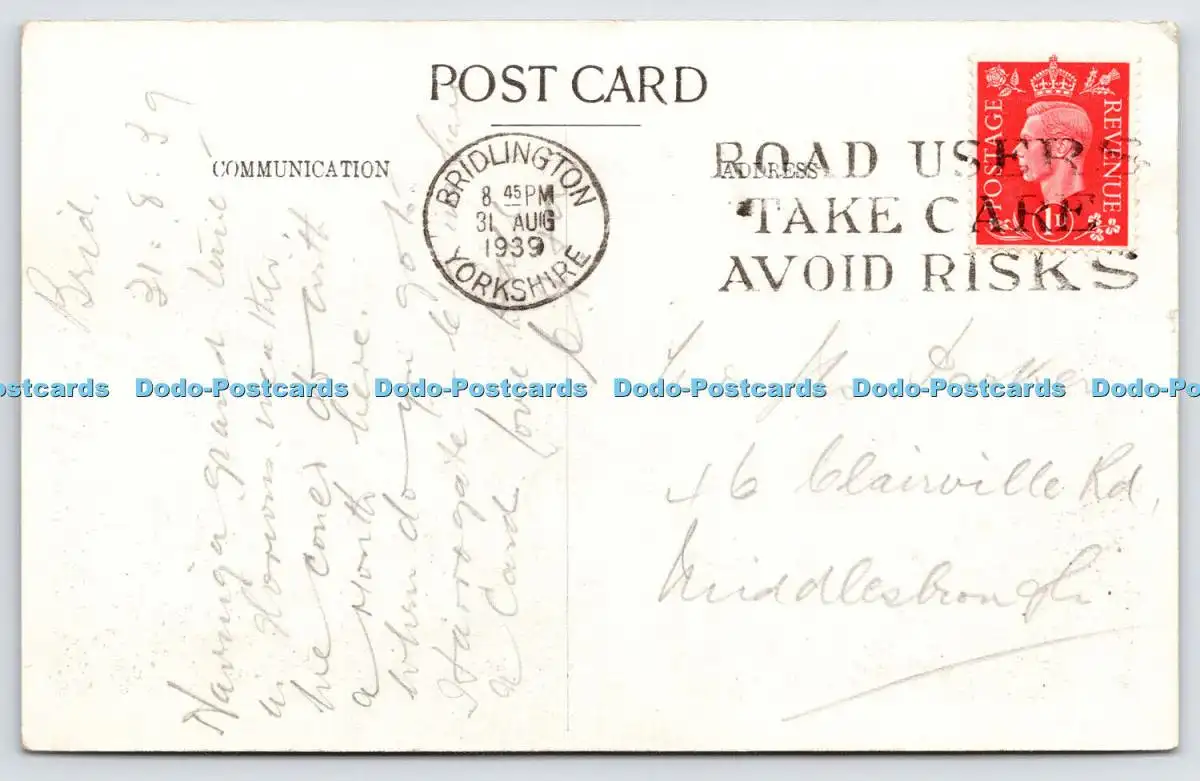 POST CARD
COMMUNICATION
ADDRESS
BRIDLINGTON
8 45 PM
31 AUG
1939
YORKSHIRE
ROAD USERS
TAKE CARE
AVOID RISKS
POSTAGE
REVENUE
1D
Brid.
31.8.39
Having a grand time
in glorious weather.
a month here.
when do you go to
Harrogate
a Card. love
46 Clairville Rd,
Middlesbrough
Dodo-Postcards Dodo-Postcards Dodo-Postcards Dodo-Postcards